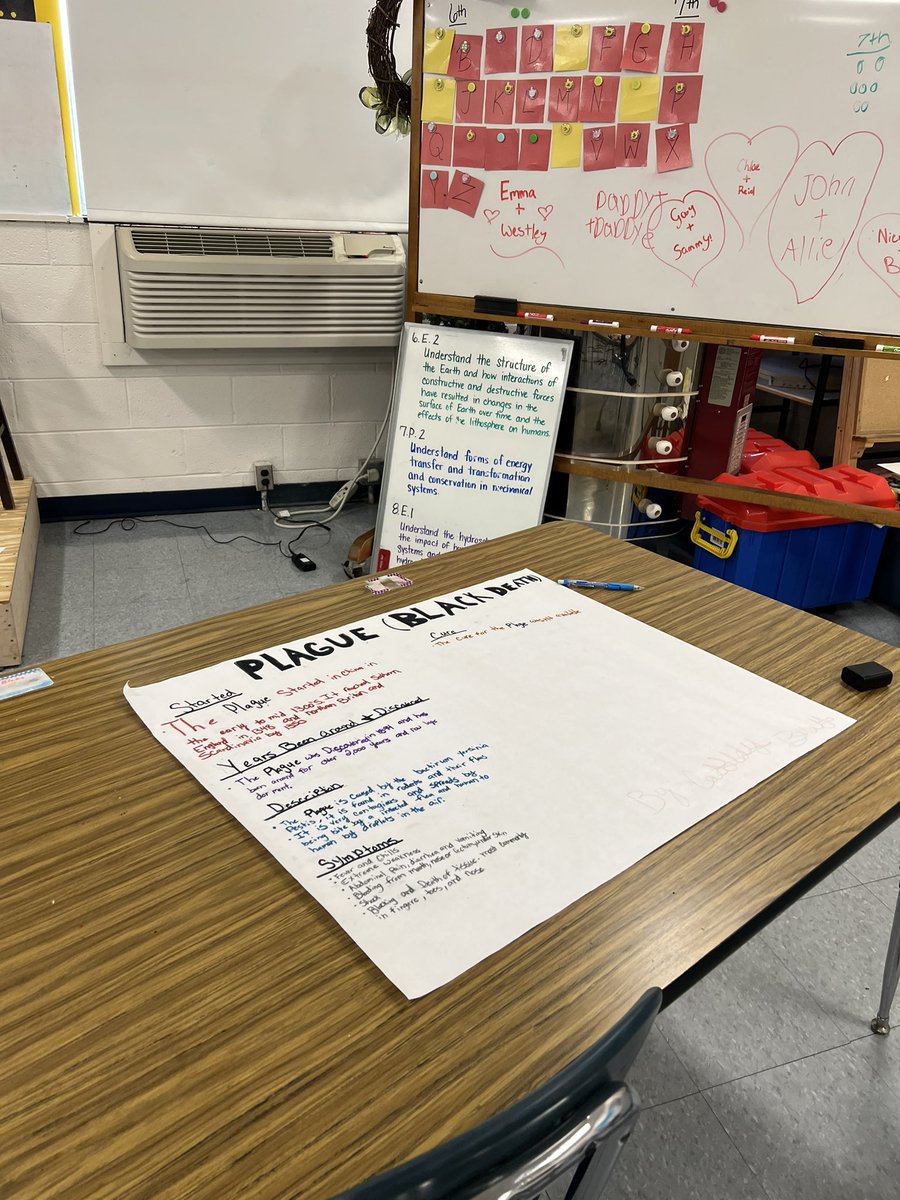 6th
7th
B D F G H
J K L M N P
Q V W X
Y Z
7th
Emma
+
Westley
DaDDY+
+DaDDYe
Gary
+
Sammy!
Chloe
+
Reid
John
+
Allie
Nic
B
6.E.2
Understand the structure of
the Earth and how interactions of
constructive and destructive forces
have resulted in changes in the
surface of Earth over time and the
effects of the lithosphere on humans.
7.P.2
Understand forms of energy
transfer and transformation
and conservation in mechanical
systems.
8.E.1
Understand the hydros
the impact of h
systems and
hydro
PLAGUE (BLACK DEATH)
Started
The Plague Started in China in
the early to mid 1300's. It Reached Suthern
England in 1348 and northern Briton and
Scandinavia by 1350
Years Been around & Discovered
• The Plague was Discovered in 1894 and has
been around for over 2,000 years and now lays
dorment.
Description
• The Plague is Caused by the bactirum yersinia
Pestis, it is found in rodents and their fleas
• It is very contagious and spreads by
being bite by a infected flea and human to
human by droplets in the air.
Symptoms
• Fever and Chills
• Extreme weakness
• Abdominal Pain, diarrhea and vomiting
• Bleeding from mouth, nose or
• Shock
• Blacking and Death of tissue most commonly
in fingers, toes, and nose
Cure
• The Cure for the Plage
By